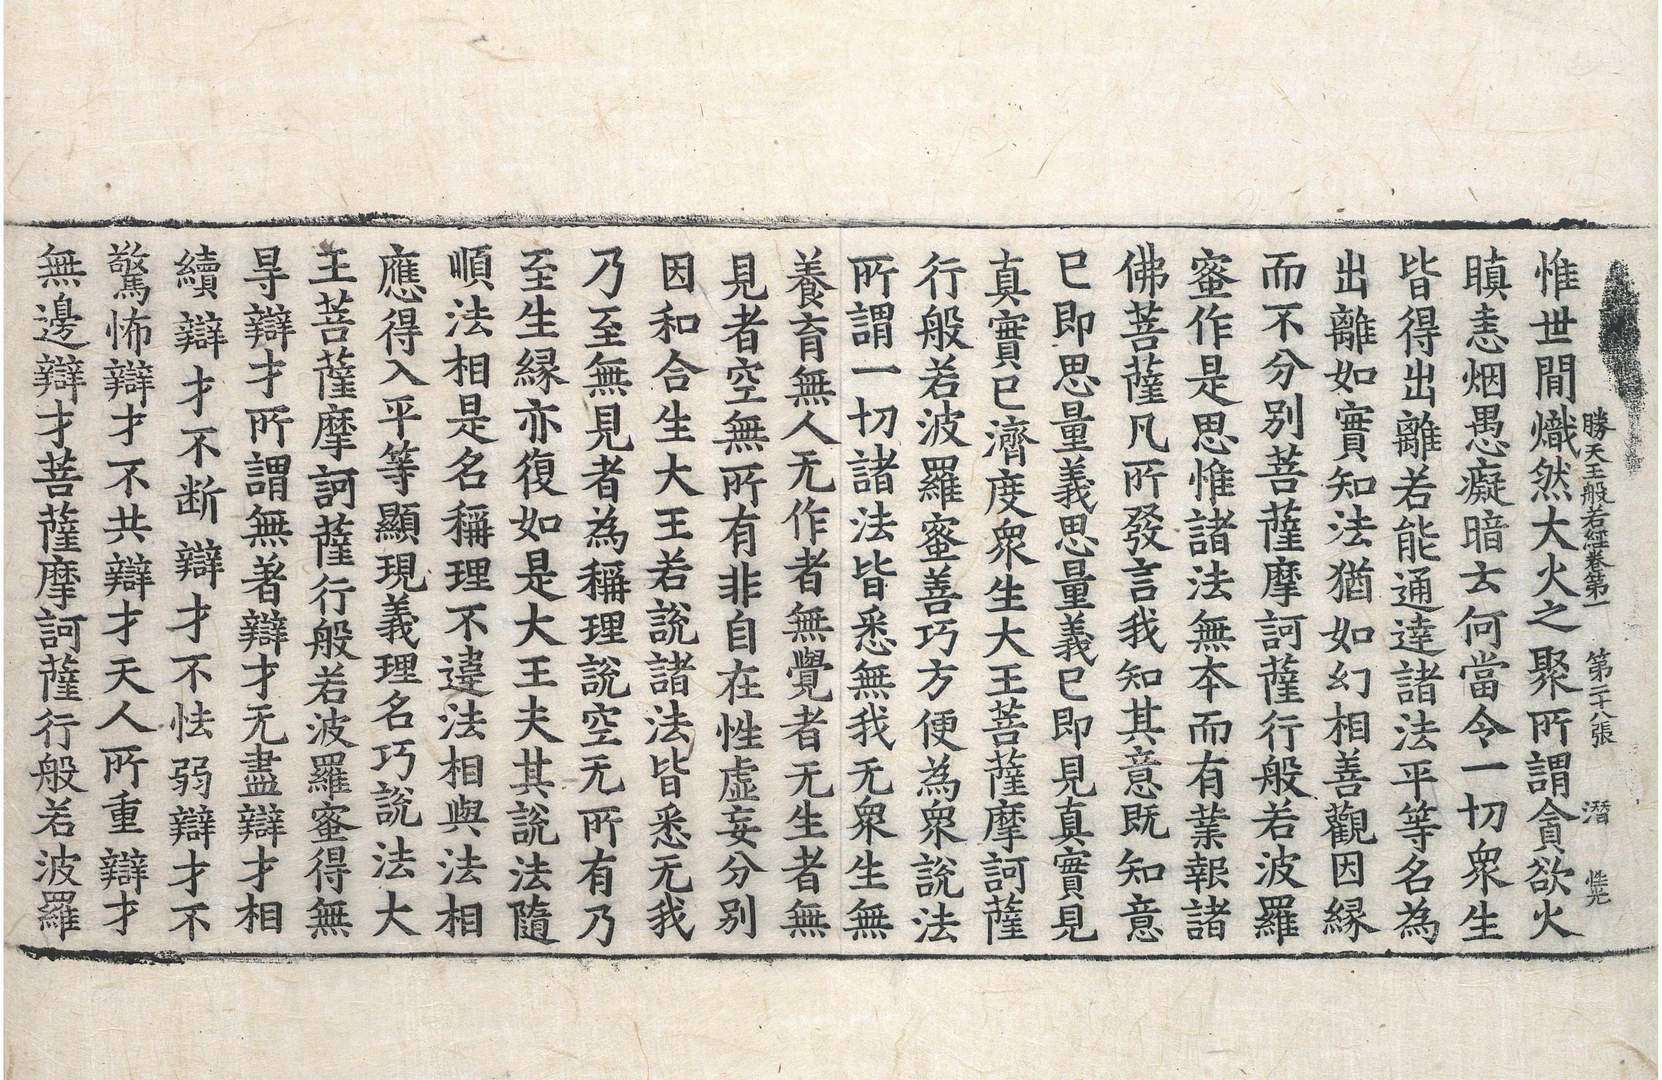 勝天王般若經卷第一　第二十八張　潛　惟光
惟世間熾然大火之聚所謂貪欲火
瞋恚烟愚癡暗云何當令一切衆生
皆得出離若能通達諸法平等名為
出離如實知法猶如幻相善觀因緣
而不分別菩薩摩訶薩行般若波羅
蜜作是思惟諸法無本而有業報諸
佛菩薩凡所發言我知其意既知意
已即思量義思量義已即見真實見
真實已濟度衆生大王菩薩摩訶薩
行般若波羅蜜善巧方便為衆說法
所謂一切諸法皆悉無我无衆生無
養育無人无作者無覺者无生者無
見者空無所有非自在性虛妄分別
因和合生大王若說諸法皆悉无我
乃至無見者為稱理說空无所有乃
至生緣亦復如是大王夫其說法隨
順法相是名稱理不違法相與法相
應得入平等顯現義理名巧說法大
王菩薩摩訶薩行般若波羅蜜得無
㝵辯才所謂無著辯才无盡辯才相
續辯才不断辯才不怯弱辯才不
驚怖辯才不共辯才天人所重辯才
無邊辯才菩薩摩訶薩行般若波羅